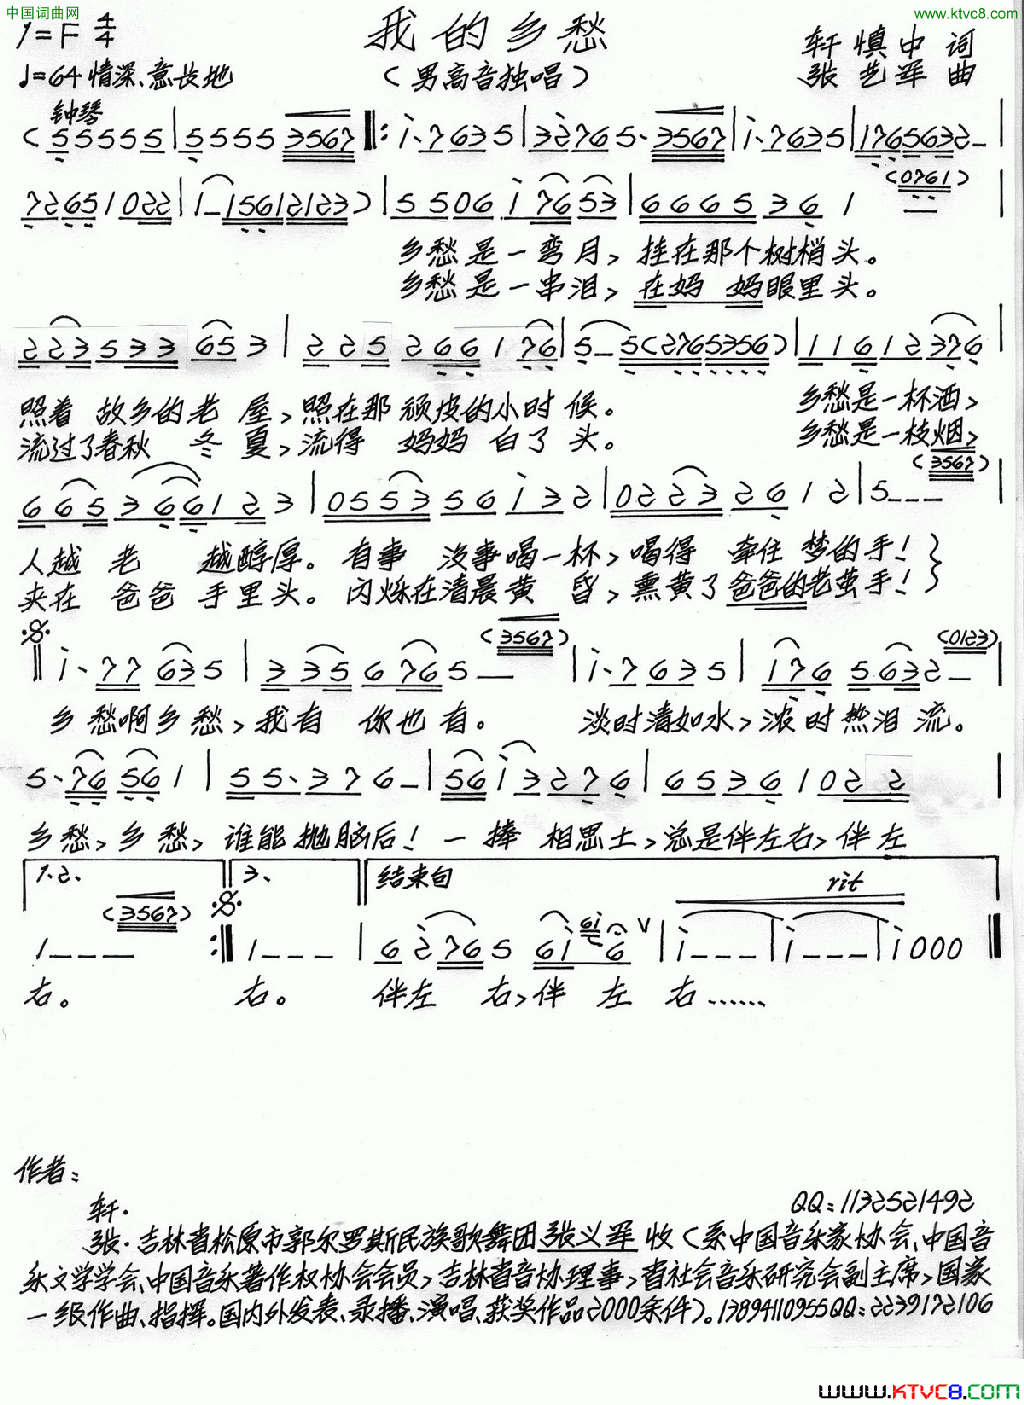 中国词曲网
www.ktvc8.com
1=F 4/4
我的乡愁
轩慎中 词
♩=64 情深、意长地
(男高音独唱)
张艺军 曲
钟琴
(5 5555 5 | 5 555 3567 ‖: i· 7635 | 32765· 3567 | i· 7635 | 1765632— |
7265 1022 | i—i561 2123) | 5506 i7653 | 6665 36 1 — (0761) |
乡愁是一弯月, 挂在那个树梢头。
乡愁是一串泪, 在妈 妈眼里头。
223533 653 | 225 266 176 | 5—5(2765356) | 116 12376 |
照着 故乡的老 屋, 照在那 顽皮的小时 候。 乡愁是一杯酒,
流过了春秋 冬 夏, 流得 妈妈 白了 头。 乡愁是一枝烟,
665 366123 | 055356 i32 | 0223 26 12 | 5——— (3567) |
人越 老 越醇厚。 有事 没事喝一杯, 喝得 牵住 梦的手!
夹在 爸爸 手里头。 闪烁在清晨黄 昏, 熏黄了爸爸的老茧手!
‖ i·77 635 | 335 6765— (3567) | i·7635 | i76 5632— (0123) |
乡愁啊乡愁, 我有 你也有。 淡时清如水, 浓时热泪流。
5·76 561 | 55·376— | 56i3276 | 6536 1022 |
乡愁, 乡愁, 谁能抛脑后! 一捧 相思土, 总是伴左右, 伴左
1.2. 3. 结束句 rit
1——— (3567) :‖ 1——— | 62765 6i 6i6 V | i——— | i——— | i000 ‖
右。 右。 伴左 右, 伴 左 右……
作者:
轩·
QQ:1132521492
张·吉林省松原市郭尔罗斯民族歌舞团张义军 收(系中国音乐家协会、中国音
乐文学学会、中国音乐著作权协会会员, 吉林省音协理事, 省社会音乐研究会副主席, 国家
一级作曲、指挥。国内外发表、录播、演唱、获奖作品2000余件)。13894110955QQ:2239172106
www.KTVC8.com